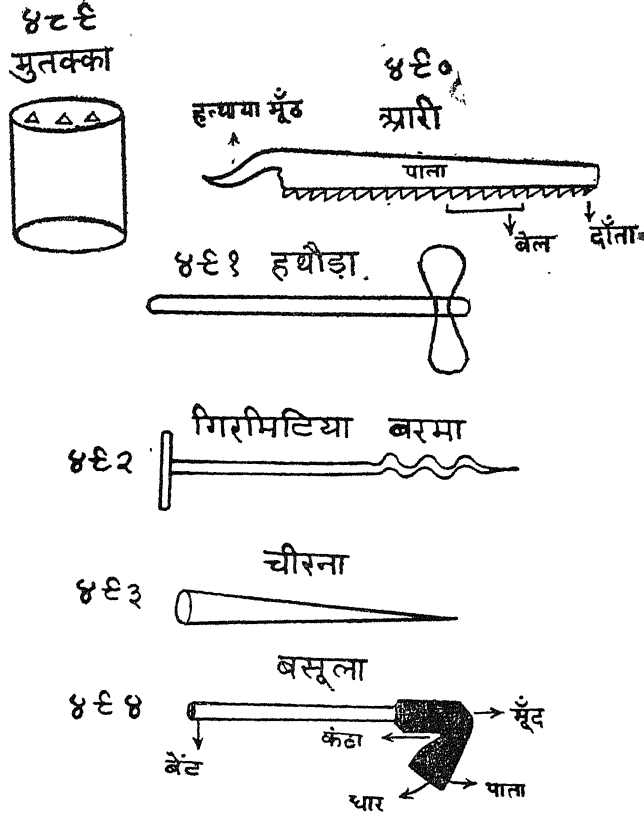 ४८९
मुतक्का
४९०
आरी
हत्थाया मूँठ
पाता
बेल
दाँता
४९१ हथौड़ा.
गिरमिटिया बरमा
४९२
चीरना
४९३
बसूला
४९४
मूँद
कंठा
बेंट
पाता
धार